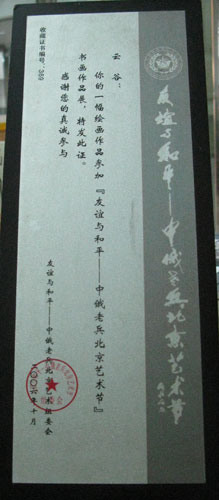 友谊与和平——中俄老兵北京艺术节
云谷：
你的一幅绘画作品参加『友谊与和平——中俄老兵北京艺术节』
书画作品展，特发此证。
感谢您的真诚参与
友谊与和平——中俄老兵北京艺术节组委会
二〇〇六年十月
收藏证书编号：389